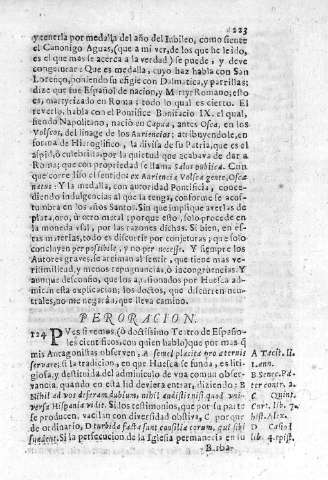 223
y tenerla por medalla del año del Iubileo, como siente
el Canonigo Aguas, (que a mi ver, de los que he leido,
es el que mas se acerca a la verdad) se puede, y deve
congeturar: Que es medalla, cuyo haz habla con San
Lorenço, poniendo su efigie con Dalmatica, y parrillas;
dize que fue Español de nacion, y Martyr Romano; esto
es, martyrizado en Roma: todo lo qual es cierto. El
reverso, habla con el Pontifice Bonifacio IX. el qual,
siendo Napolitano, nació en Capua, antes Osca, en los
Volscos, del linage de los Auriencias: atribuyendole, en
forma de Hieroglifico, la divisa de su Patria, que es el
aspid, ò culebrina, por la quietud que acabava de dar a
Roma; que con propriedad se llama salus publica. Con
que corre liso el sentido: ex Auriencia Volsca gente, Osca
natus: Y la medalla, con autoridad Pontificia, conce-
diendo indulgencias al que la tenga, conforme se acos-
tumbra en los años Santos. Sin que implique averlas de
plata, oro, ù otro metal; porque esto, solo procede en
la moneda vsual, por las razones dichas. Si bien, en es-
tas materias, todo es discurrir por conjeturas; que solo
concluyen per possibile, y no per necesse. Y siempre los
Autores graves, se arriman al sentir, que tiene mas ve-
risimilitud, y menos repugnancias, ò incongruencias. Y
aunque desconfio, que los apasionados por Huesca ad-
mitan esta explicacion; los doctos, que discurren neu-
trales, no me negarán, que lleva camino.
PERORACION.
124 Pues si vemos, (ò doctissimo Teatro de Españo-
les cientificos, con quien hablo) que por mas que
mis Antagonistas observen, A semel placita pro æternis A Tacit. II.
servare; si la tradicion, en que Huesca se funda, es liti- 1. ann.
giosa, y destituida del adminiculo de vna comun obser- B Senec. Pa-
vancia, quando en esta lid deviera entrar, diziendo: B ter contr. 2.
Nihil ad vos deferam dubium, nihil audistis nisi quod vni- C Quint.
versa Hispania vidit. Si los testimonios, que por su parte Cur. lib. 7.
se producen, vacilan con diversidad obstiva, C porque hist. Alex.
de ordinario, D turbida facta sunt consilia eorum, qui sibi D Casiod
suadent; Si la persecucion de la Iglesia permanecia en su lib. 4. epist.
B. riba-